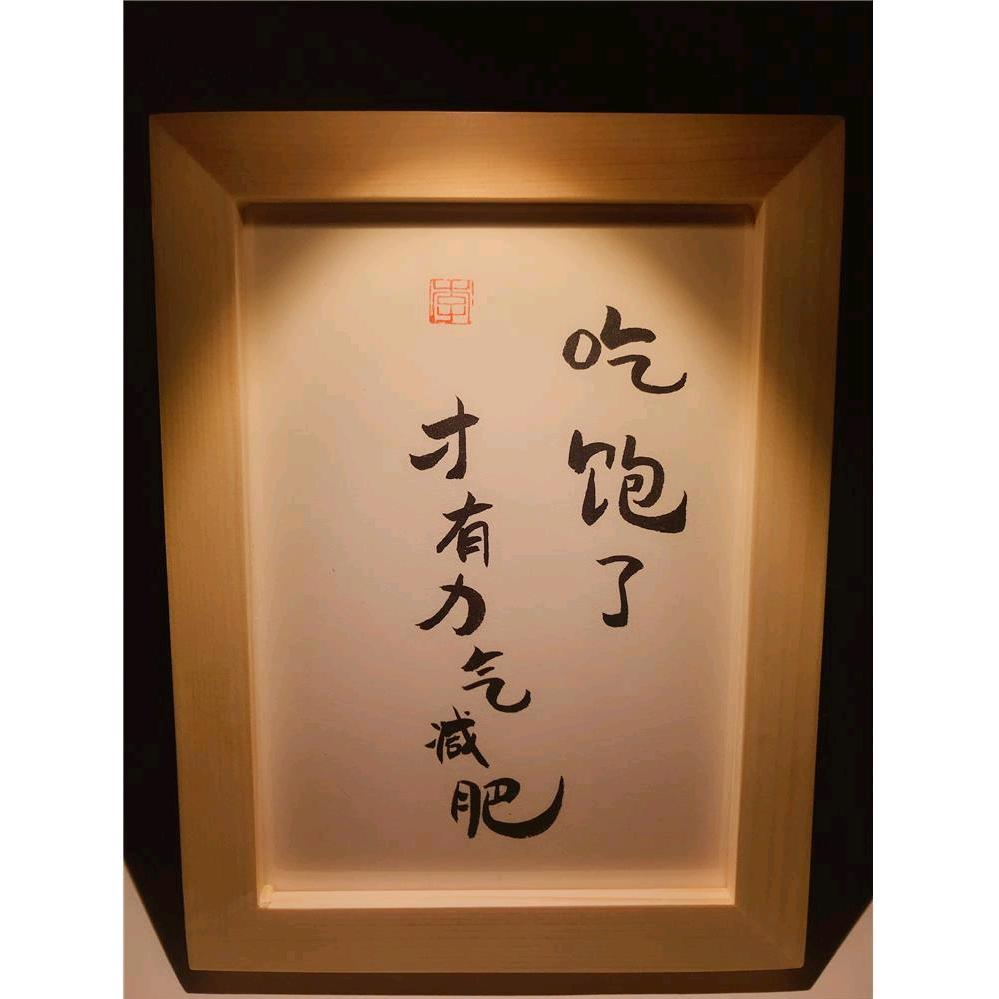 吃饱了
才有力气减肥